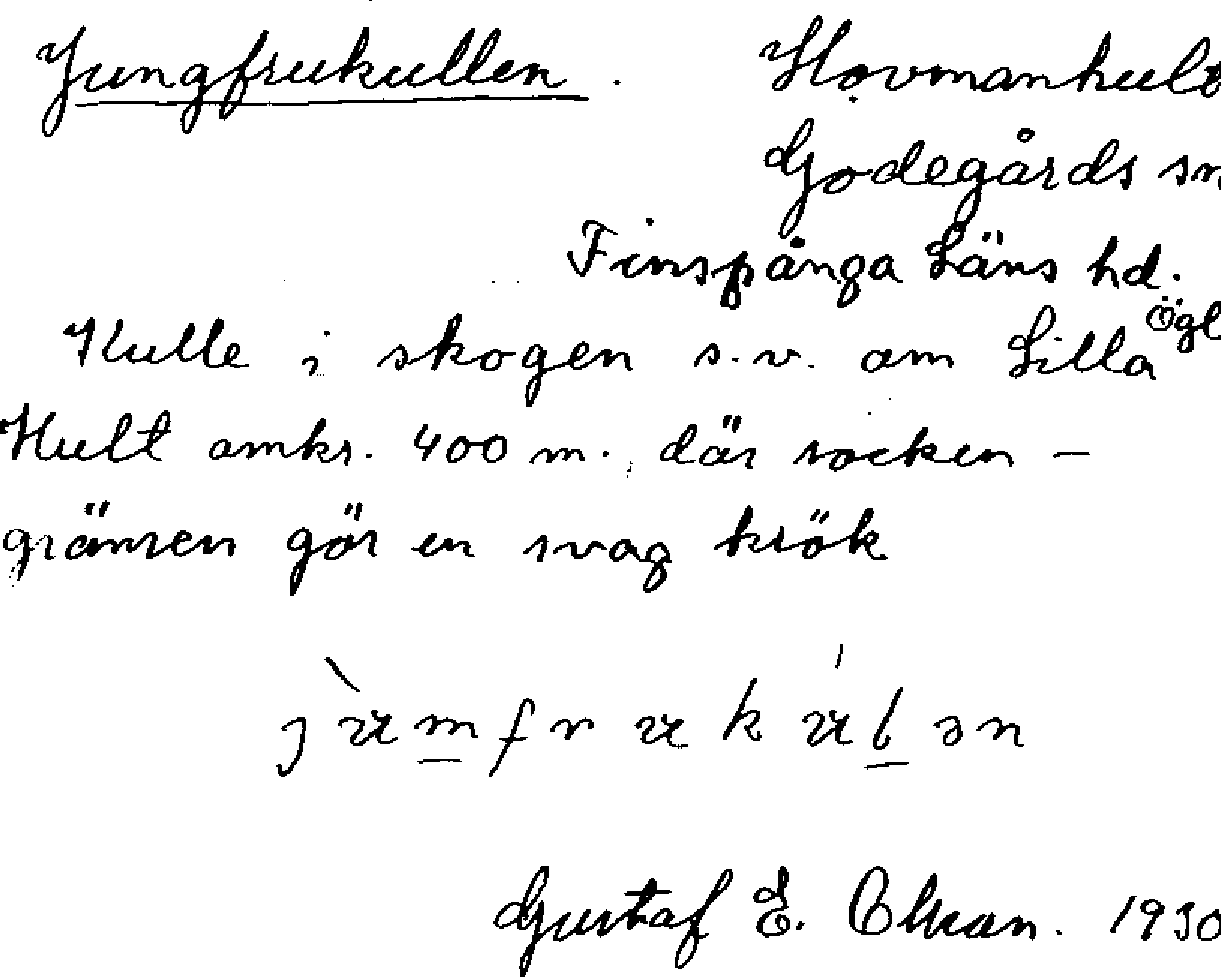 Jungfrukullen. Hovmanhult
Godegårds sn
Finspånga Läns hd.
Ögl
Kulle i skogen s.v. om Lilla
Hult omkr. 400 m. där socken-
gränsen gör en svag krök
Gustaf E. Olson. 1930